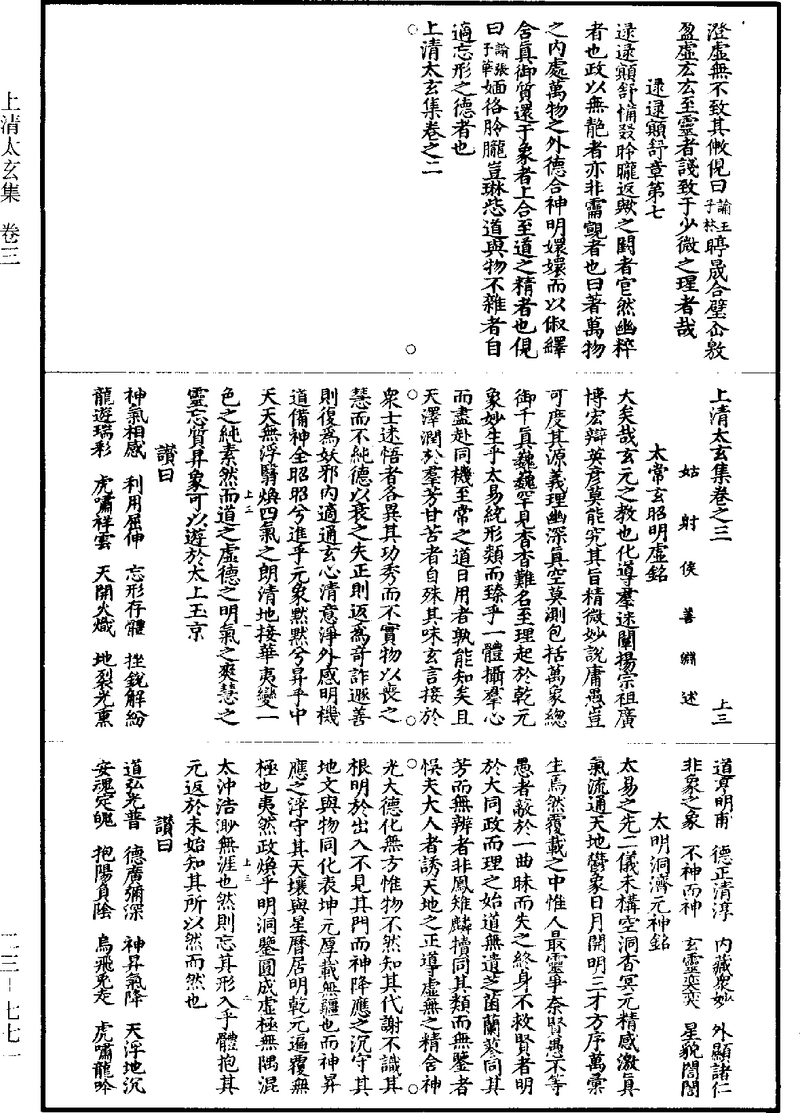 澄虛無不致其儌俔曰諭王子林
盈虛玄玄至靈者誐致于少微之理者哉
逯逯顛舒章第七
者也政以無艶者亦非需覬者也曰著萬物
之內處萬物之外德合神明嬛嬛而以俶繹
含真御質還于象者上合至道之精者也俔
適忘形之德者也
上清太玄集卷之二
上清太玄集卷之三
姑射侯善淵述
上三
太常玄昭明虛銘
大矣哉玄元之教也化導羣迷闡揚宗祖廣
博宏辯英彥莫能究其旨精微妙說庸愚豈
可度其源義理幽深真空莫測包括萬象總
御千真巍巍罕見杳杳難名至理起於乾元
象妙生乎太易統形類而臻乎一體攝羣心
而盡赴同機至常之道日用者孰能知矣且
天澤潤於羣芳甘苦者自殊其味玄言接於
衆士迷悟者各異其功秀而不實物以喪之
慧而不純德以衰之失正則返為奇詐遯善
則復為妖邪內適通玄心清意淨外感明機
道備神全昭昭兮進乎元象默默兮昇乎中
天天無浮翳煥四氣之朗清地接華夷變一
色之純素然而道之虛德之明氣之爽慧之
靈忘質昇象可以遊於太上玉京
讚曰
神氣相感 利用屈伸 忘形存體 挫銳解紛
龍遊瑞彩 虎嘯祥雲 天開火熾 地裂光熏
道亨明甫 德正清淳 內藏衆妙 外顯諸仁
非象之象 不神而神 玄靈奕奕 星貌誾誾
太明洞濟元神銘
太易之先二儀未構空洞杳冥元精感激真
氣流通天地鬱象日月開明三才方序萬彙
生焉然覆載之中惟人最靈爭奈賢愚不等
愚者蔽於一曲昧而失之終身不救賢者明
於大同政而理之始道無遺芝菌蘭蓼同其
芳而無辨者非鳳雉麟犢同其類而無鑒者
悞夫大人者誘天地之正導虛無之精含神
光大德化無方惟物不然知其代謝不識其
根明於出入不見其門而神降應之沉守其
地文與物同化表坤元厚載無疆也而神昇
應之浮守其天壤與星曆居明乾元遍覆無
極也夷然政煥乎明洞鑒圓成虛極無隅混
太沖浩渺無涯也然則忘其形入乎體抱其
元返於未始知其所以然而然也
讚曰
道弘光普 德廣彌深 神昇氣降 天浮地沉
安魂定魄 抱陽負陰 烏飛兔走 虎嘯龍吟
上清太玄集 卷三
二三–七七一